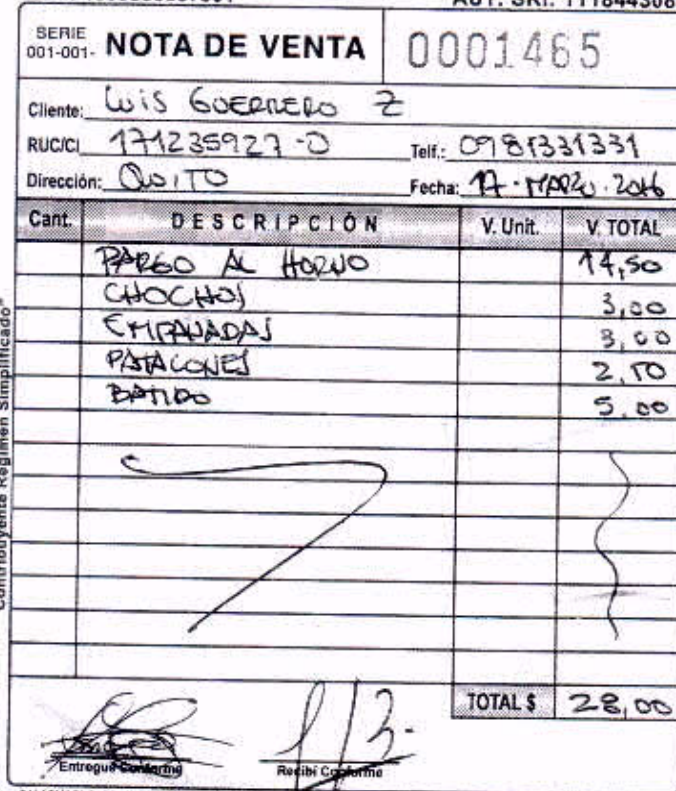 AUT. SRI. 111844308
SERIE
001-001-
NOTA DE VENTA
0001465
Cliente: LUIS GUERRERO Z
RUC/CI 171235927-0 Telf.: 0981331331
Dirección: QUITO Fecha: 17-MARZO-2016
Cant. DESCRIPCIÓN V. Unit. V. TOTAL
PARGO AL HORNO 14,50
CHOCHOS 3,00
EMPANADAS 3,00
PATACONES 2,50
BATIDO 5,00
TOTAL $ 28,00
Entregué Conforme Recibí Conforme
Contribuyente Régimen Simplificado"